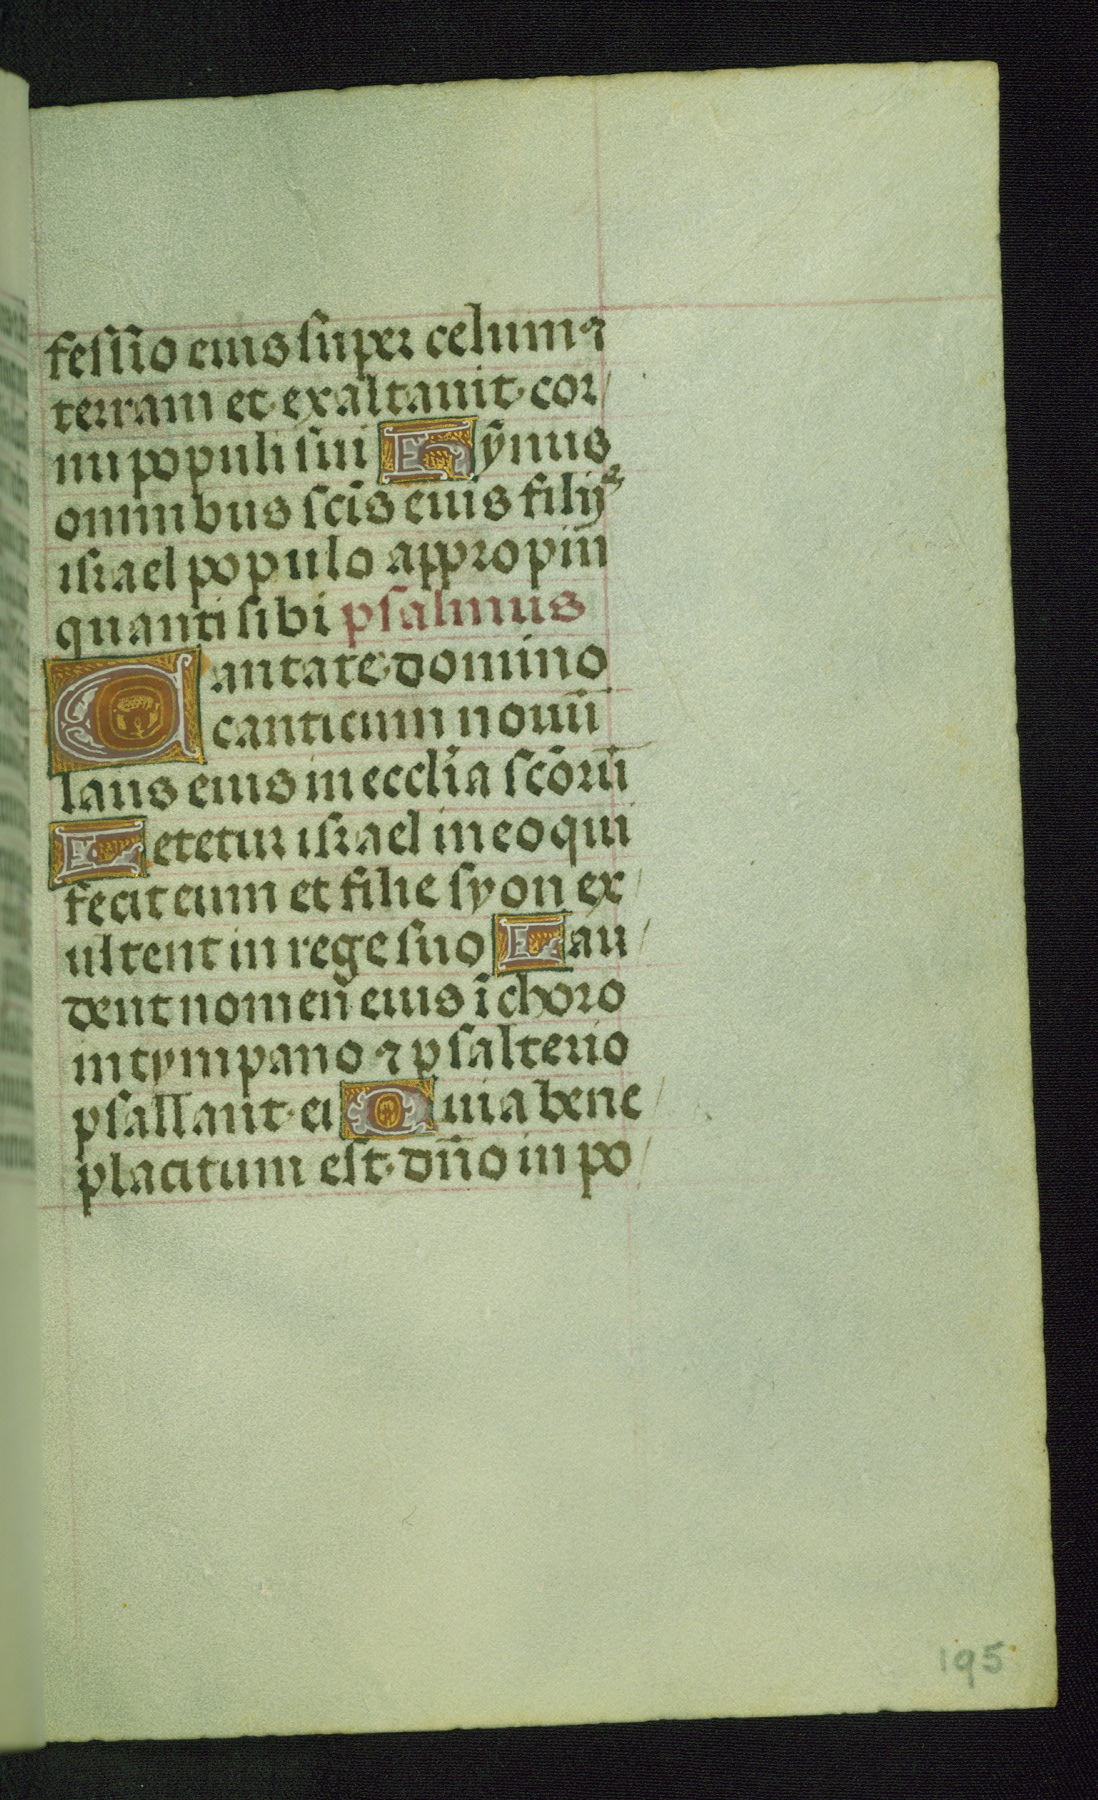 fessio eius super celum ⁊
terram et exaltauit cor
nu populi sui Hỹnus
omnibus scīs eius filijs
israel populo appropin̄
quanti sibi psalmus
Cantate domino
canticum nouū
laus eius in ecclīa scōrū
Letetur israel in eo qui
fecit eum et filie syon ex
ultent in rege suo Lau
dent nomen̄ eius ī choro
in tympano ⁊ psalterio
psallant ei Quia bene
placitum est dn̄o in po
195